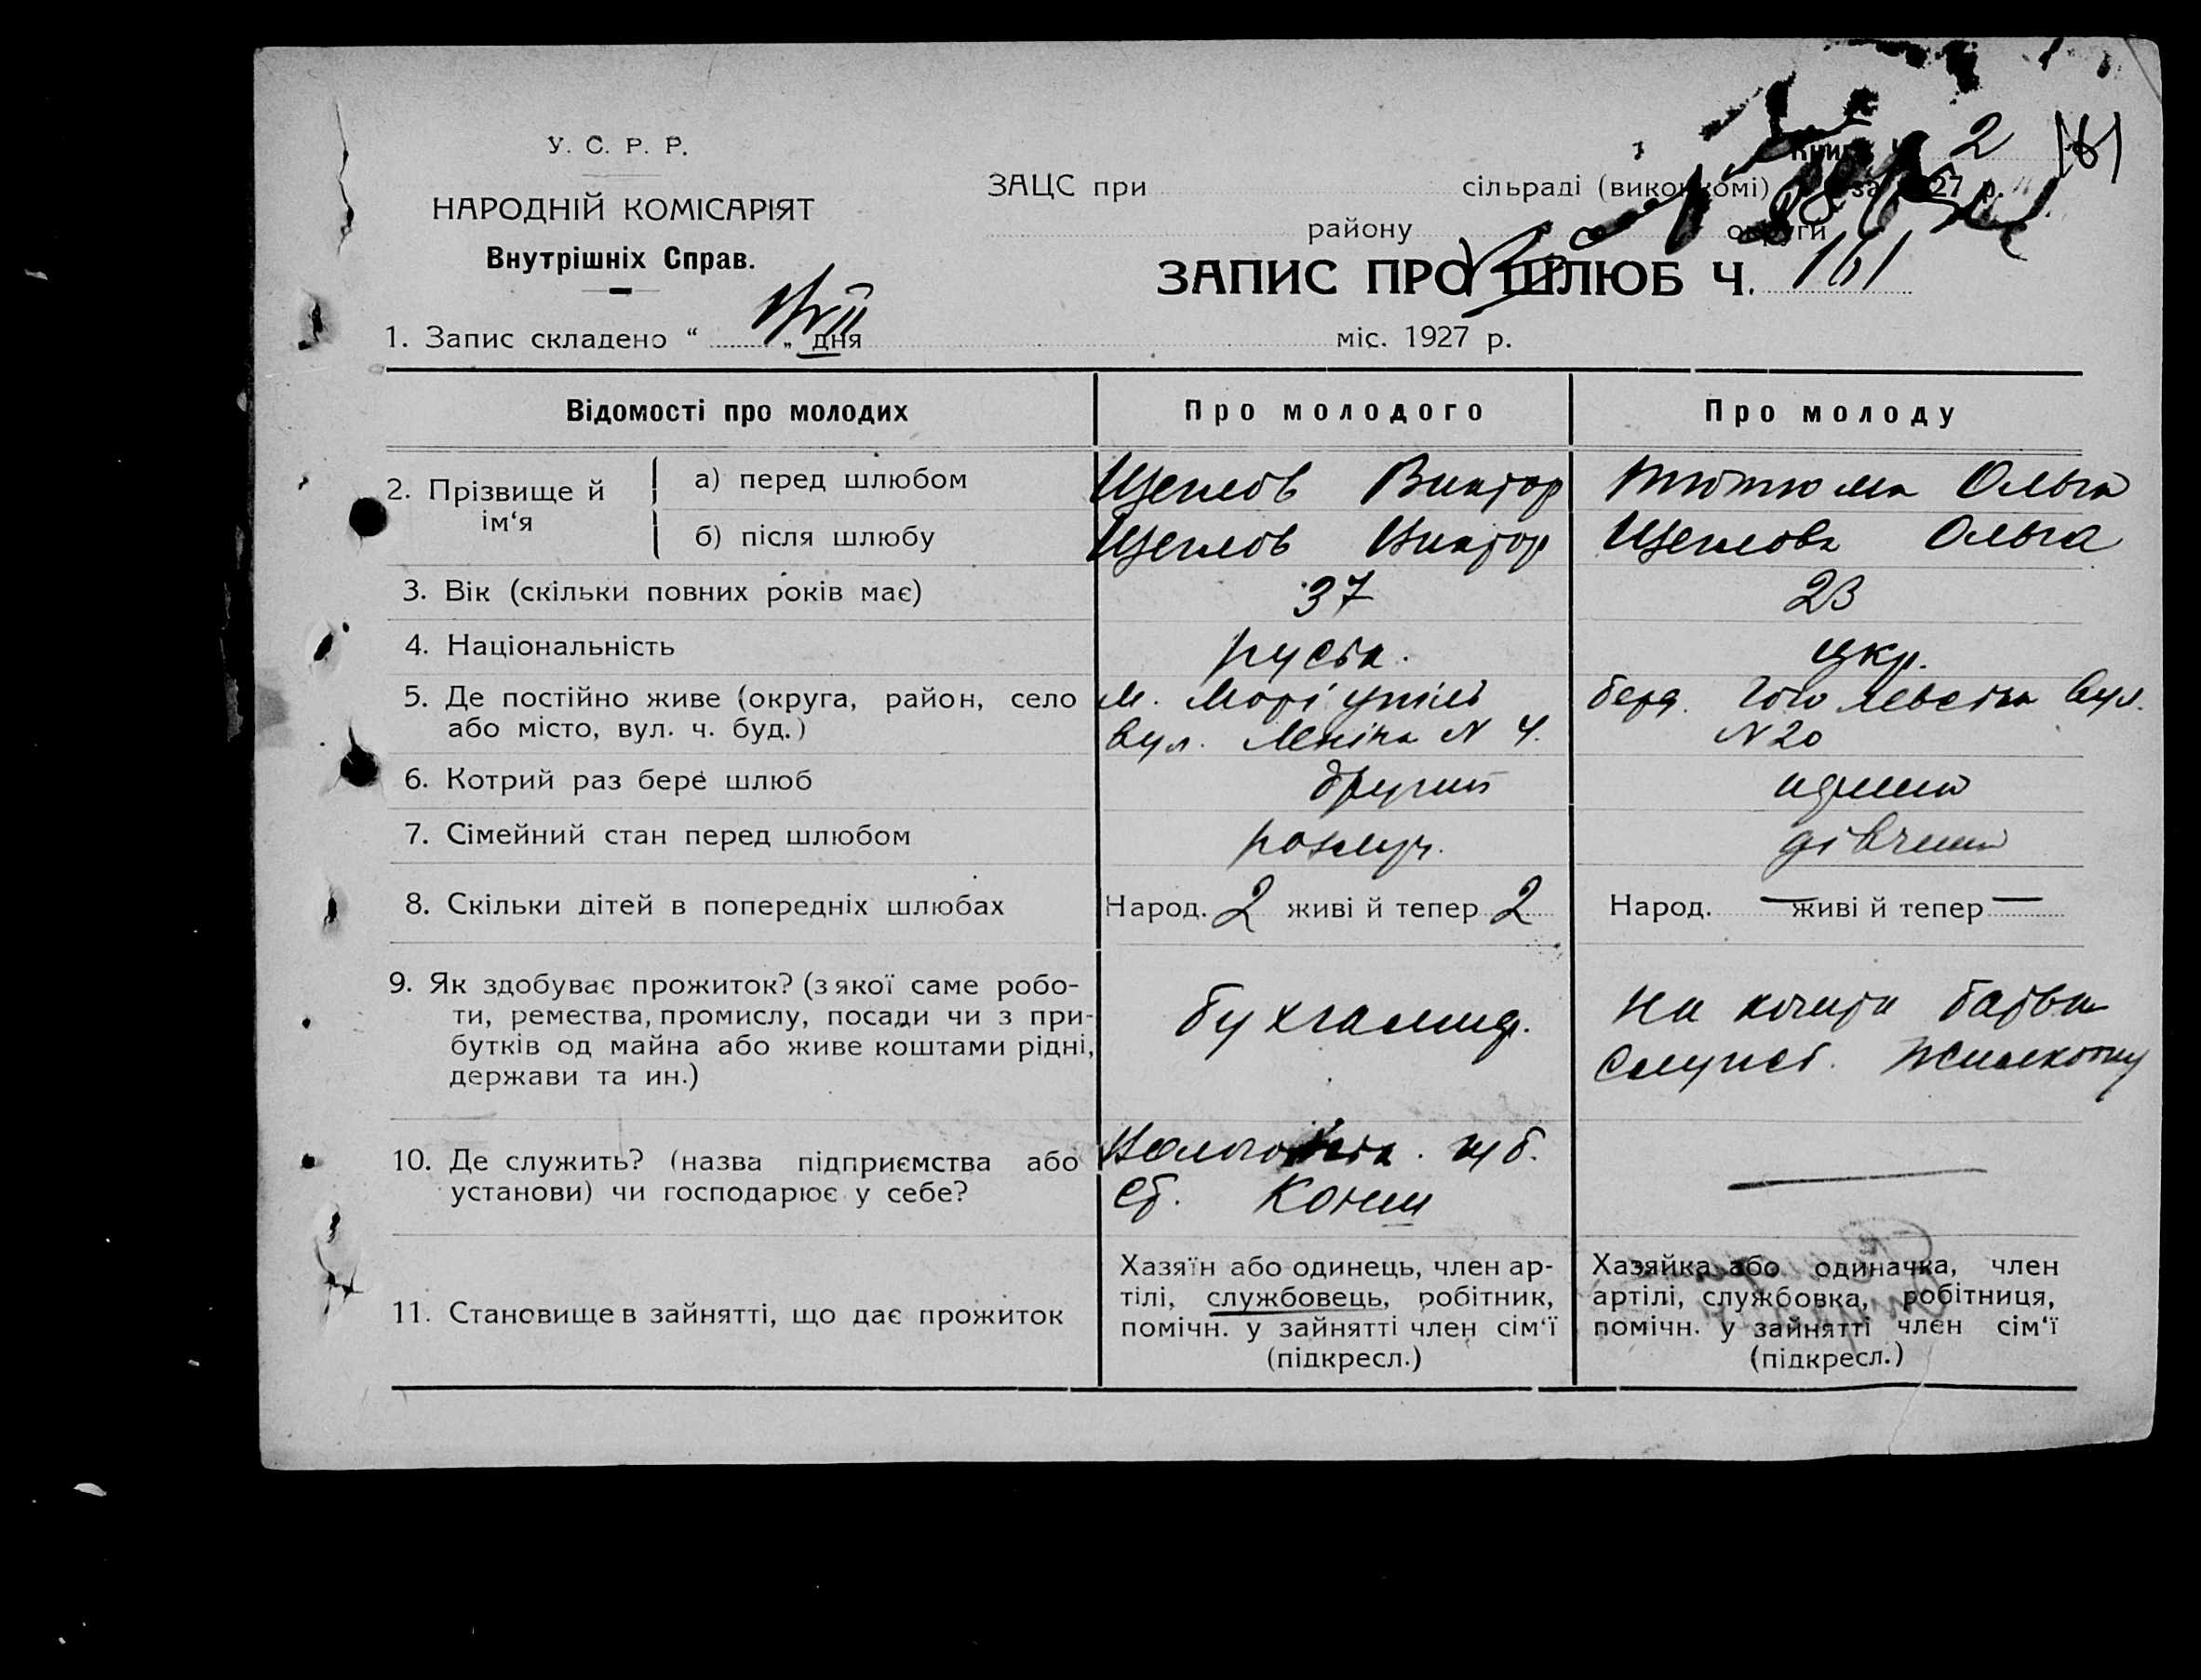 У. С. Р. Р.
НАРОДНІЙ КОМІСАРІЯТ
Внутрішніх Справ.
Книга Ч. 2 161
ЗАЦС при сільраді (виконкомі) за 1927 р.
району округи
ЗАПИС ПРО ШЛЮБ Ч. 161
1. Запис складено “ „ дня міс. 1927 р.
Відомості про молодих Про молодого Про молоду
2. Прізвище й ім‘я
а) перед шлюбом Щеглов Виктор Ольга
б) після шлюбу Щеглов Виктор Щеглова Ольга
3. Вік (скільки повних років має) 37 23
4. Національність руськ. укр.
5. Де постійно живе (округа, район, село
або місто, вул. ч. буд.)
м. Маріупіль
вул. Леніна N 4.
берд. Гоголевська вул.
N 20
6. Котрий раз бере шлюб другий
7. Сімейний стан перед шлюбом розлуч. дівчина
8. Скільки дітей в попередніх шлюбах Народ. 2 живі й тепер 2 Народ. — живі й тепер —
9. Як здобуває прожиток? (з якої саме робо-
ти, ремества, промислу, посади чи з при-
бутків од майна або живе коштами рідні,
держави та ин.)
бухгалтер.
на кошти батька
служб.
10. Де служить? (назва підприємства або
установи) чи господарює у себе?
губ.
ст.
11. Становище в зайнятті, що дає прожиток
Хазяїн або одинець, член ар-
тілі, службовець, робітник,
помічн. у зайнятті член сім‘ї
(підкресл.)
Хазяйка або одиначка, член
артілі, службовка, робітниця,
помічн. у зайнятті член сім‘ї
(підкресл.)